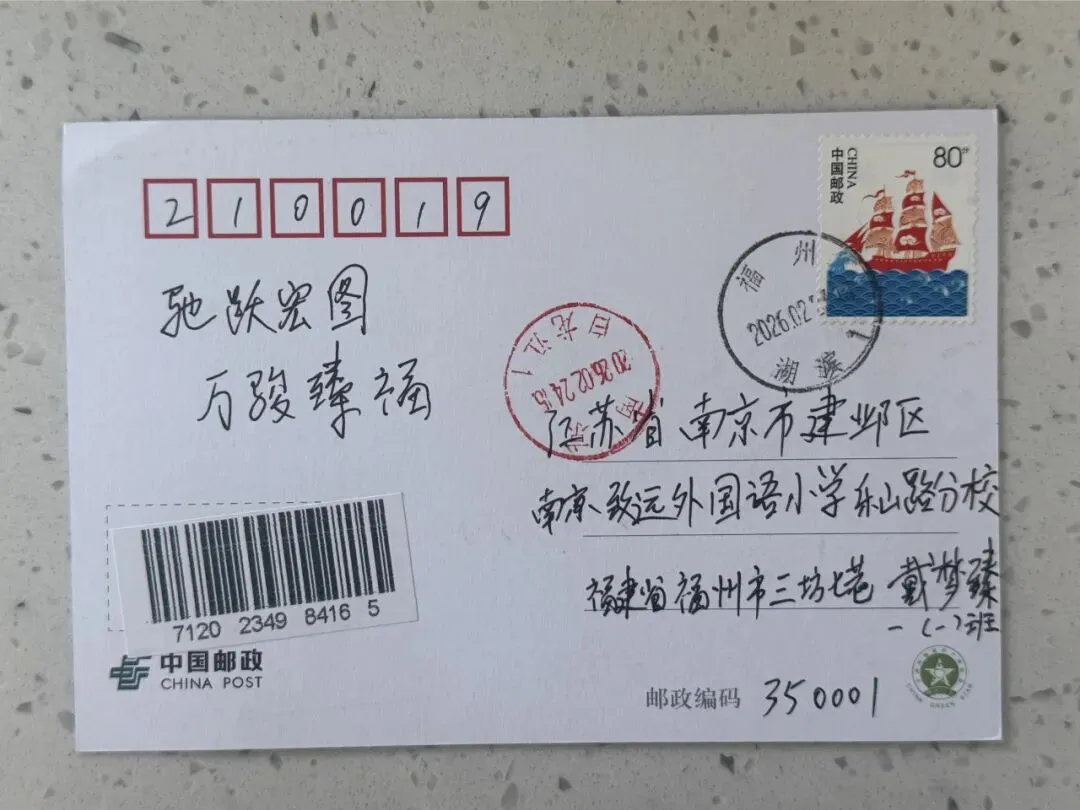 中国邮政
CHINA
80分
210019
驰跃宏图
万骏臻福
福州
2026.02
湖滨1
白龙江1
2026.02.24.15
南京
江苏省南京市建邺区
南京致远外国语小学乐山路分校
福建省福州市三坊七巷 戴梦臻
一(一)班
7120 2349 8416 5
中国邮政
CHINA POST
邮政编码 350001